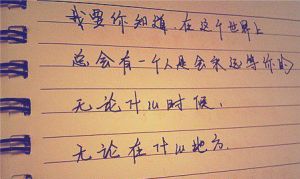 我要你知道,在这个世界上
总会有一个人是会永远等你的
无论什么时候,
无论在什么地方.